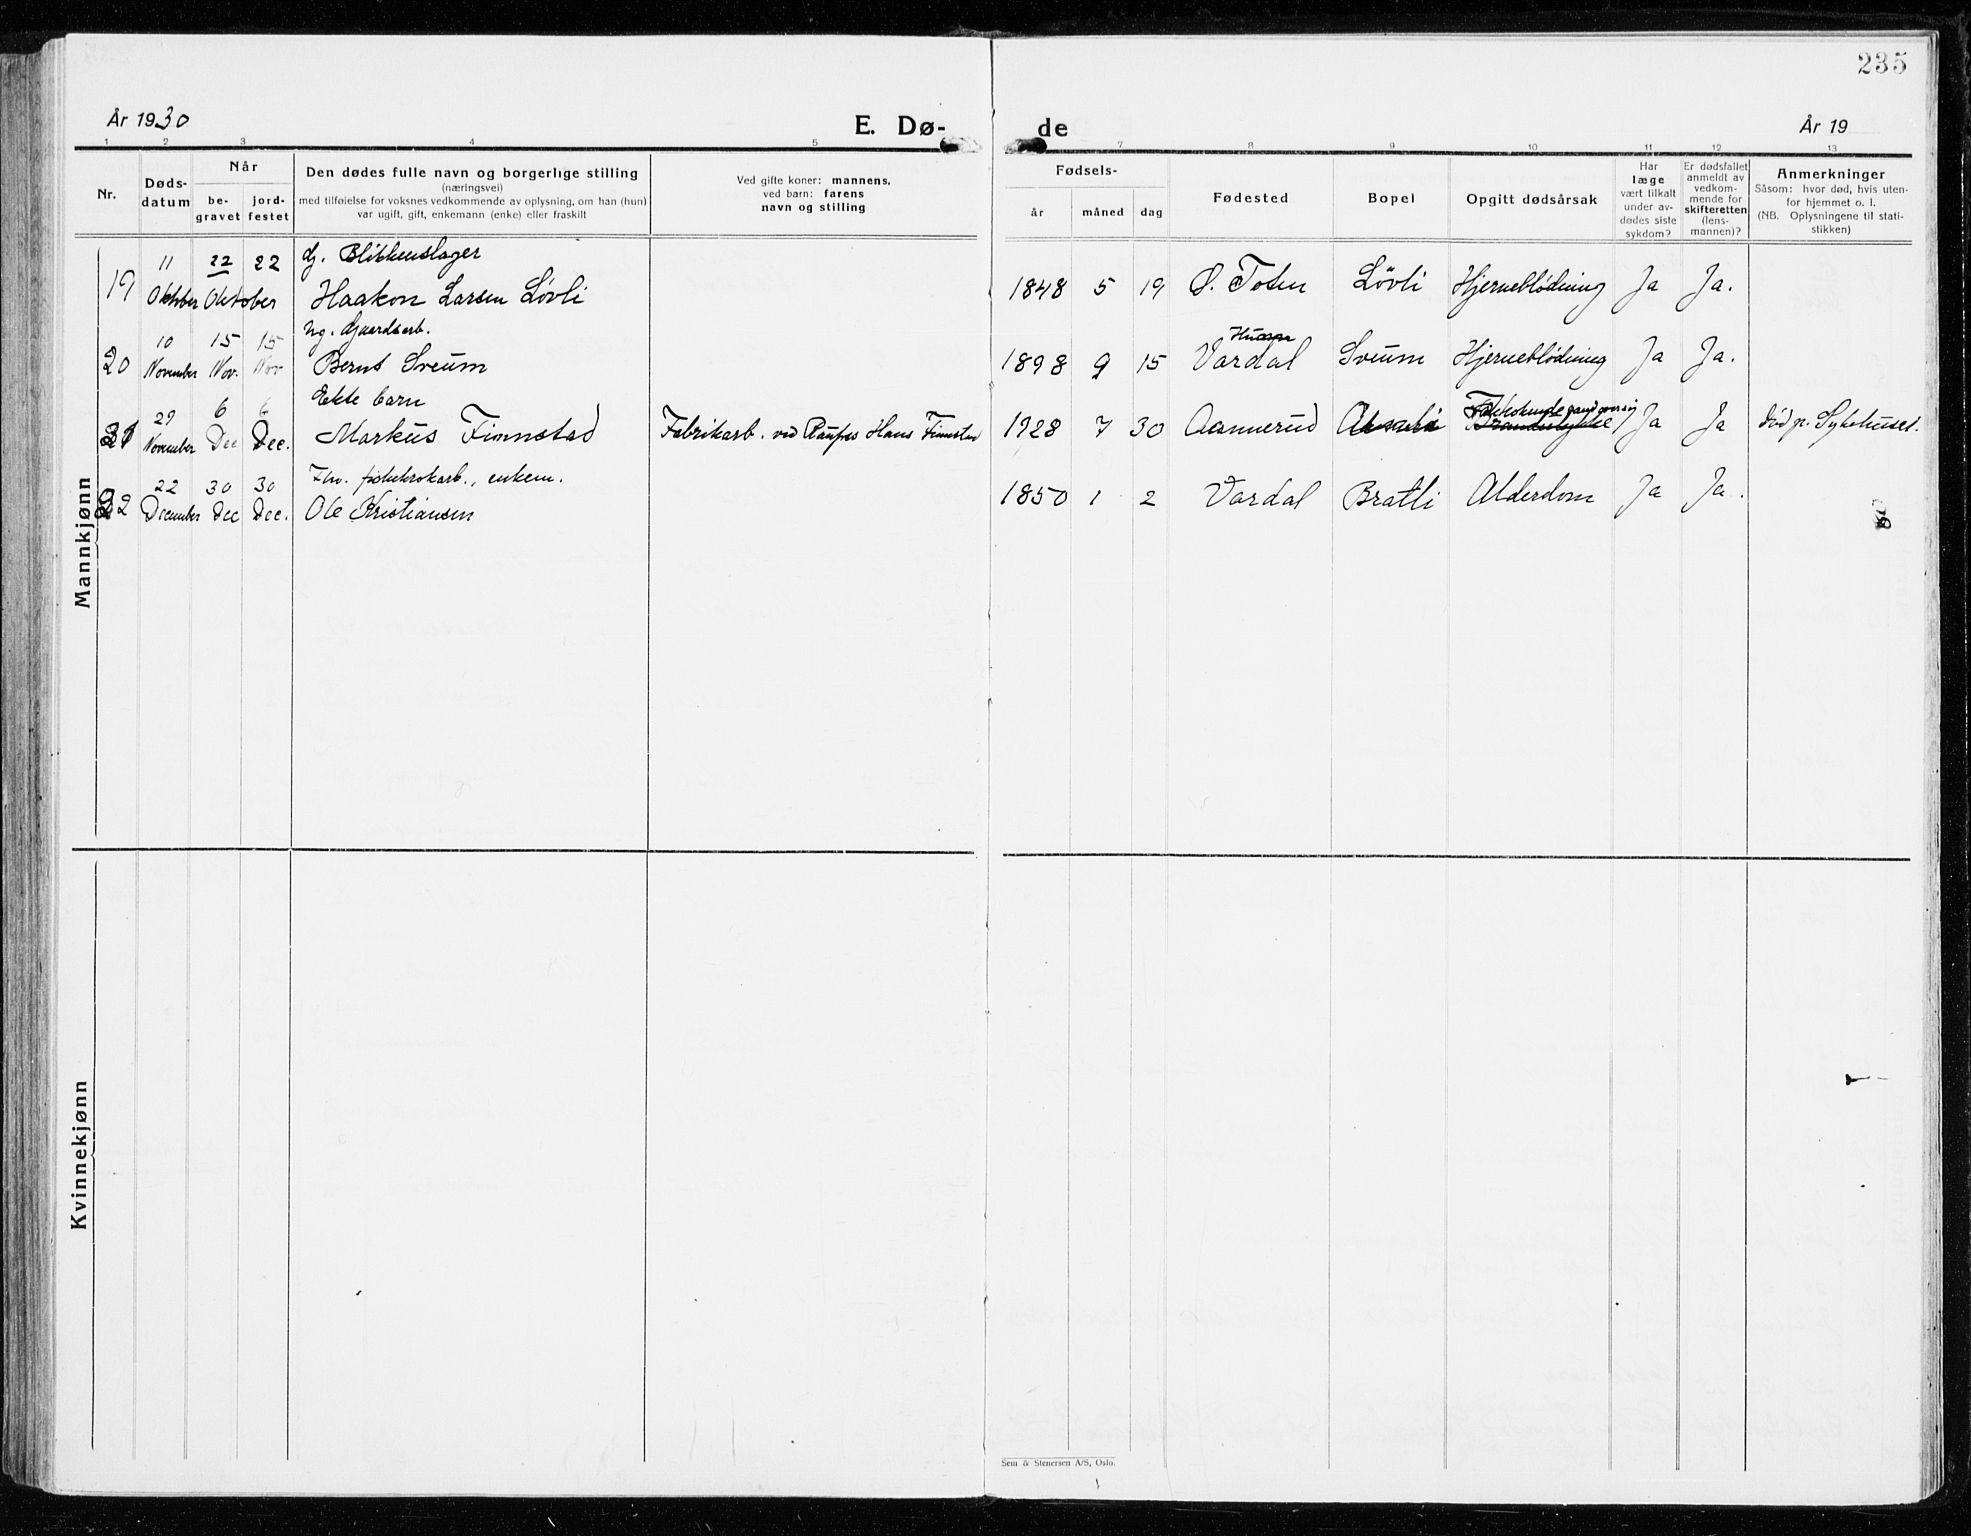 235
År 1930
E. Dø-
de
År 19
1 2 3 4 5 7 8 9 10 11 12 13
Nr.
Døds-
datum
Når
be-
gravet
jord-
festet
Den dødes fulle navn og borgerlige stilling
(næringsvei)
med tilføielse for voksnes vedkommende av oplysning, om han (hun)
var ugift, gift, enkemann (enke) eller fraskilt
Ved gifte koner: mannens,
ved barn: farens
navn og stilling
Fødsels-
år måned dag
Fødested
Bopel
Opgitt dødsårsak
Har
læge
vært tilkalt
under av-
dødes siste
sykdom?
Er dødsfallet
anmeldt av
vedkom-
mende for
skifteretten
(lens-
mannen)?
Anmerkninger
Såsom: hvor død, hvis uten-
for hjemmet o. l.
(NB. Oplysningene til stati-
stikken)
Mannkjønn
11 22 22 gj. Blikkenslager
19 Oktober Oktober Haakon Larsen Løvli 1848 5 19 Ø. Toten Løvli Hjerneblødning Ja Ja.
10 15 15 ug. Gaardsarb.
20 November Nov. Nov Bernt Sveum 1898 9 15 Vardal Sveum Hjerneblødning Ja Ja.
29 6 6 Ekte barn
21 November Dec Dec. Markus Finnstad Fabrikarb. ved Raufos Hans Finnstad 1928 7 30 Aannerud Ja Ja död p. Sykehuset.
22 30 30 enkem.
22 December Dec Dec. Ole Kristiansen 1850 1 2 Vardal Bratli Alderdom Ja Ja.
Kvinnekjønn
Sem & Stenersen A/S, Oslo.